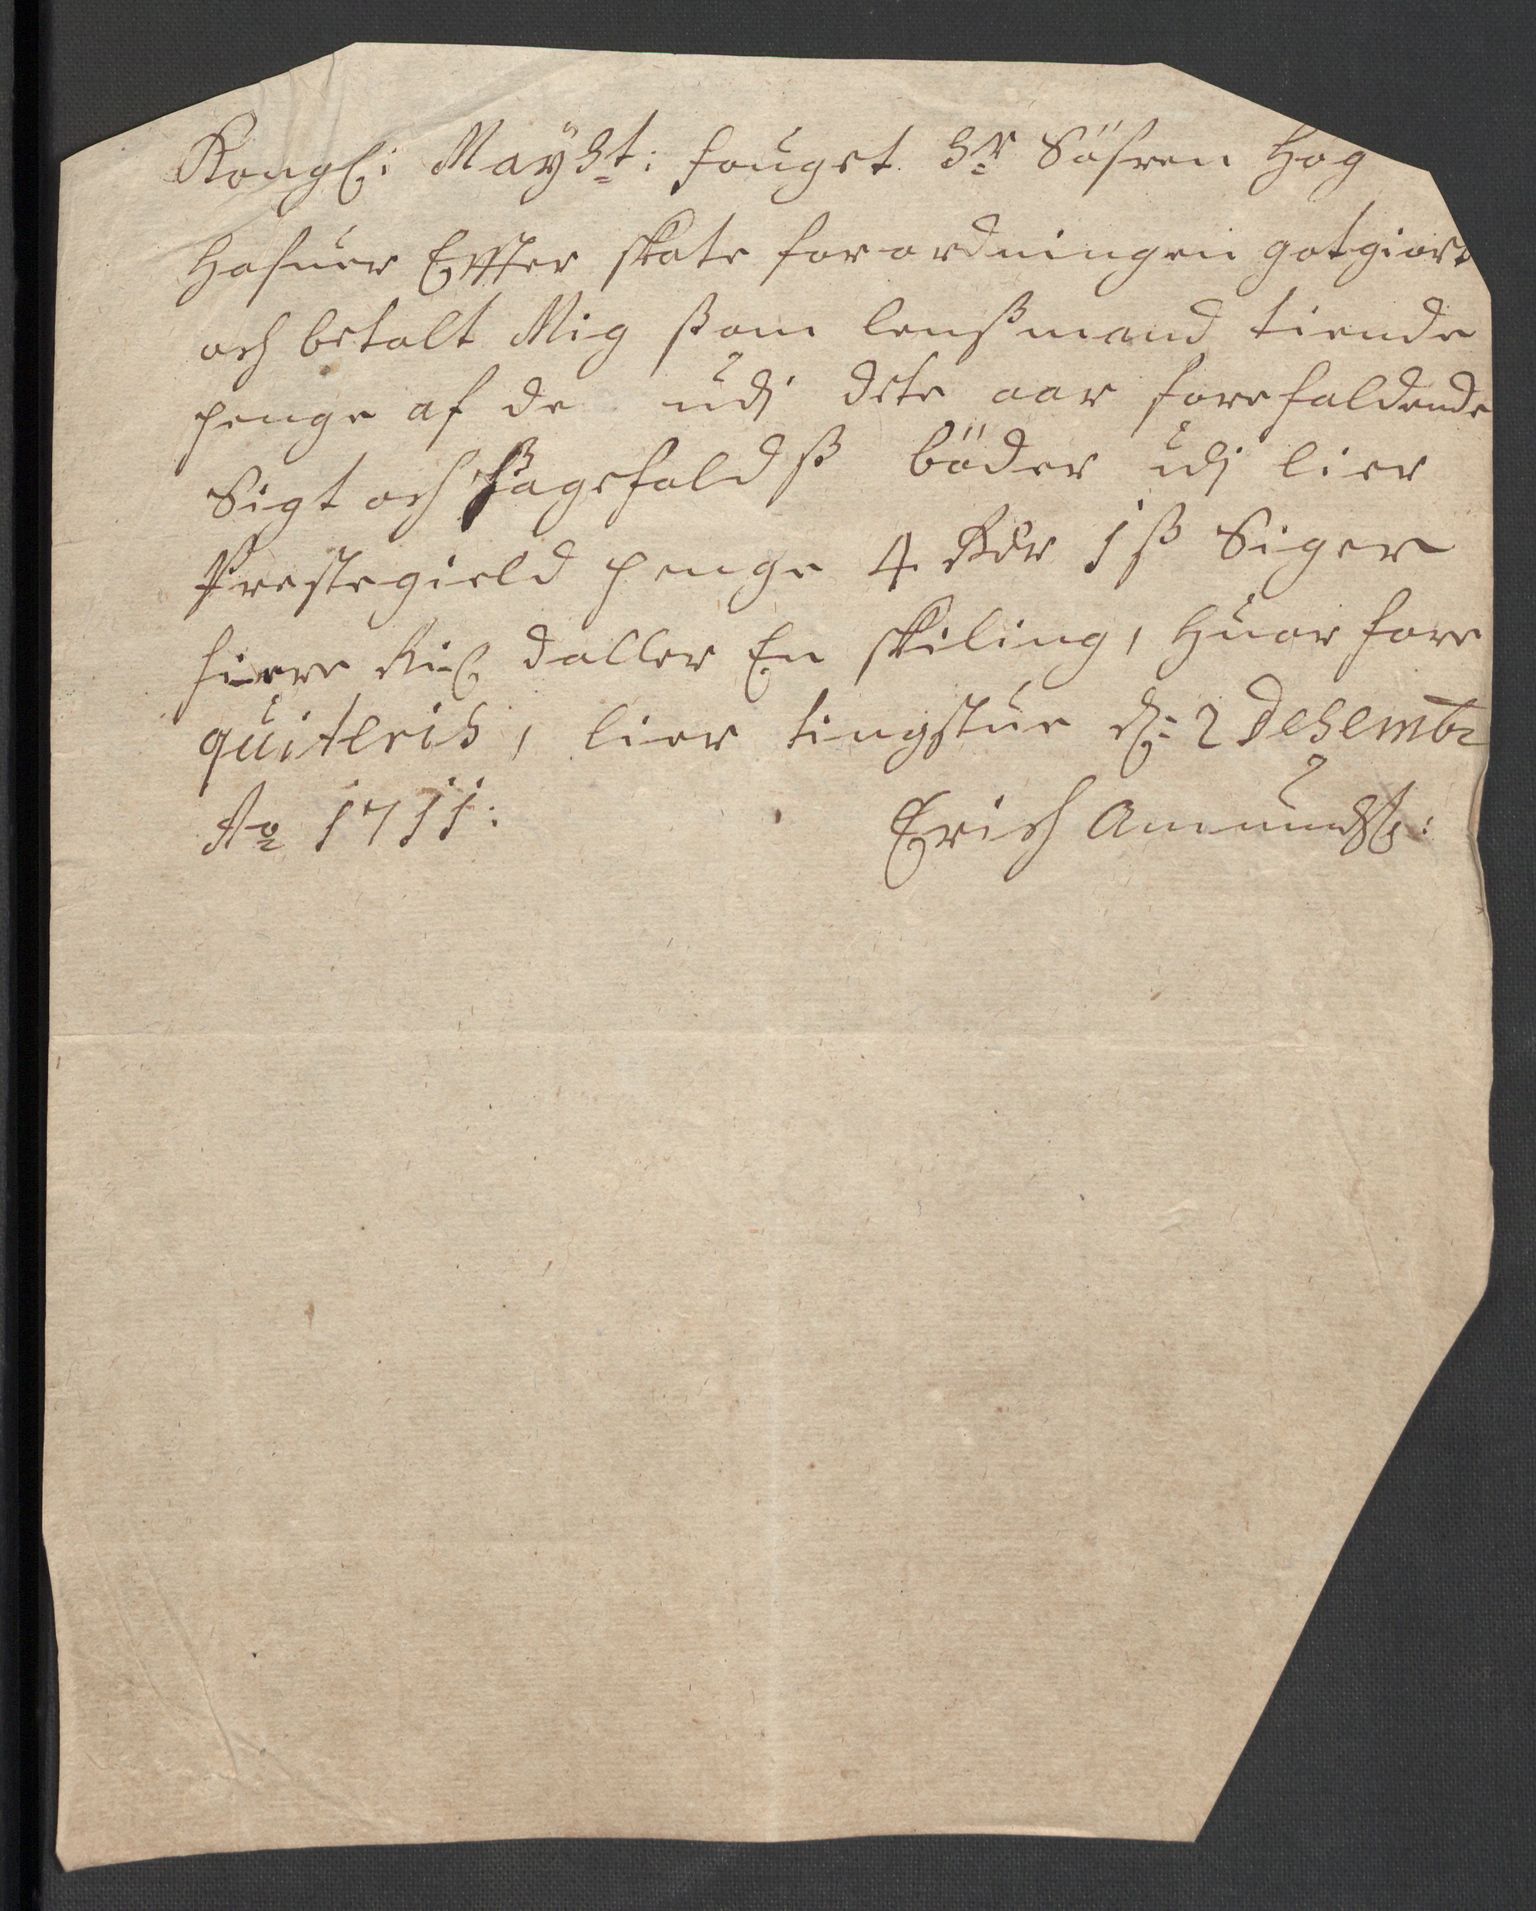 Kongl: Mayst: fouget Hr Söfren Hog
Hafuer Effter skate forordningen gotgiort
och betalt Mig ßom lenßmand tiende
penge af de udj dete aar forefaldende
Sigt och ßagefaldß böder udj lier
Prestegield penge 4 Rdr 1 ß Siger
fiere Rix daller En skiling, Huor fore
quiteris, lier tingstue d: 2 Desembr
Ao 1711: Erich Amundß: